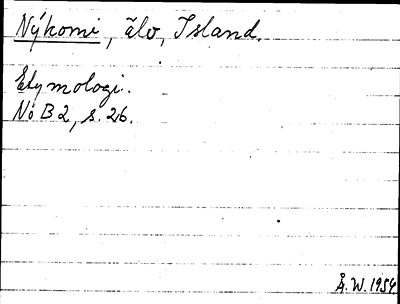 Nýkomi, älv, Island.
Etymologi.
No B 2, s. 26.
Å. W. 1954